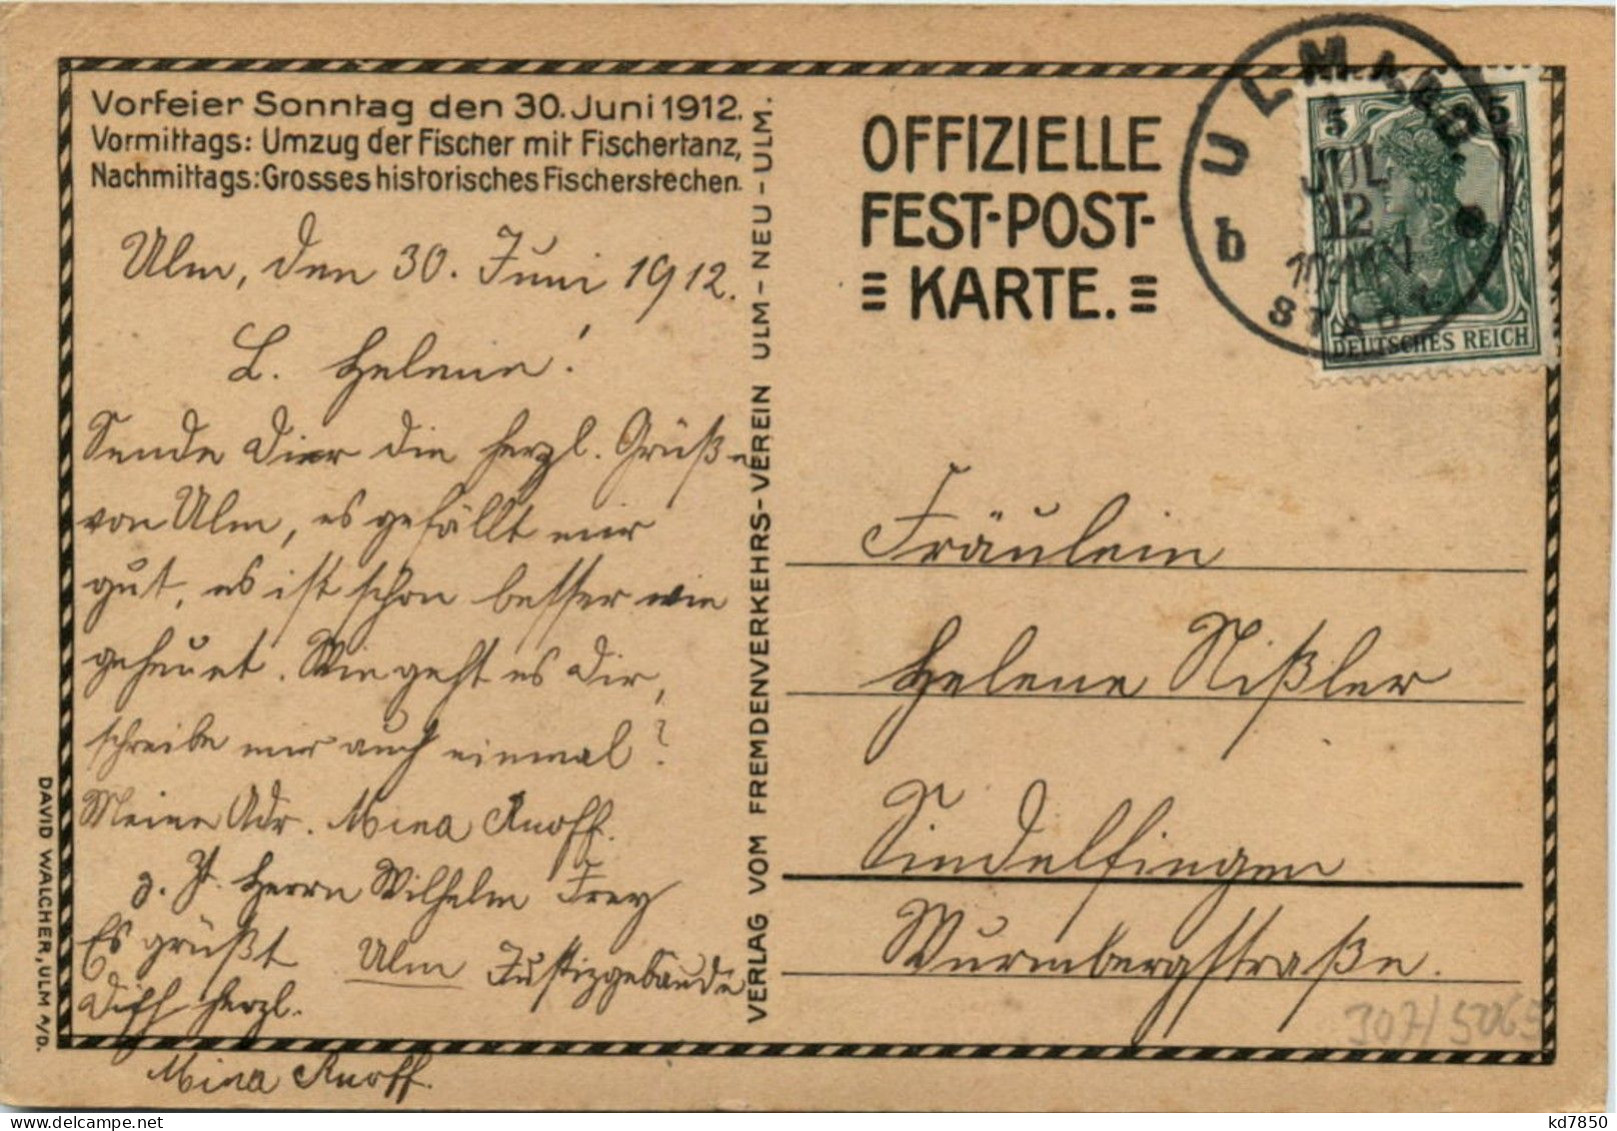 Vorfeier Sonntag den 30. Juni 1912.
Vormittags: Umzug der Fischer mit Fischertanz,
Nachmittags: Grosses historisches Fischerstechen.
Ulm, den 30. Juni 1912.
L. Helene!
Sende Dir die herzl. Grüße
von Ulm, es gefällt mir
gut, es ist schon besser wie
. Wie geht es Dir,
schreibe mir auch einmal?
Meine Adr. Mina Knoff.
z. Zt. Herrn Wilhelm Frey
Ulm Justizgebäude
Es grüßt
Dich herzl.
Mina Knoff.
DAVID WALCHER, ULM A/D.
VERLAG VOM FREMDENVERKEHRS-VEREIN ULM-NEU-ULM.
OFFIZIELLE
FEST-POST-
KARTE.
ULM
JUL
12
b
STADT
5 5
DEUTSCHES REICH
Fräulein
Helene Nißler
Sindelfingen
Wurmbergstraße.
307/5065
kd7850